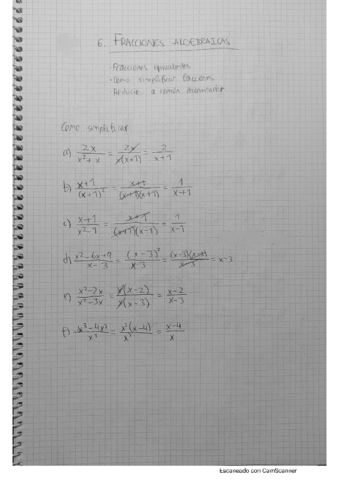 6. FRACCIONES ALGEBRAICAS
- Fracciones equivalentes
- Como simplificar fracciones
Reducir a común denominador
Como simplificar
a) 2x/(x²+x) = 2x/(x(x+1)) = 2/(x+1)
b) (x+1)/(x+1)² = (x+1)/((x+1)(x+1)) = 1/(x+1)
c) (x+1)/(x²-1) = (x+1)/((x+1)(x-1)) = 1/(x-1)
d) (x²-6x+9)/(x-3) = (x-3)²/(x-3) = (x-3)(x-3)/(x-3) = x-3
e) (x²-2x)/(x²-3x) = x(x-2)/(x(x-3)) = (x-2)/(x-3)
f) (x³-4x²)/x³ = x²(x-4)/x³ = (x-4)/x
Escaneado con CamScanner